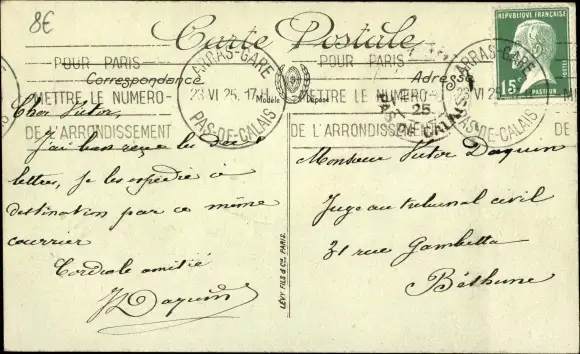 8€
Carte Postale
RÉPUBLIQUE FRANÇAISE
15c
POSTES
PASTEUR
POUR PARIS
METTRE LE NUMERO
DE L'ARRONDISSEMENT
ARRAS-GARE
23 VI 25. 17H
PAS-DE-CALAIS
POUR PARIS
METTRE LE NUMERO
DE L'ARRONDISSEMENT
ARRAS-GARE
VI 25
PAS-DE-CALAIS
25
PAS DE CALAIS
DE
Correspondance
Modèle Déposé
Adresse
Cher Victor,
J'ai bien reçu les deux
lettres, je les expédie à
destination par ce même
courrier
Cordiale amitié
Daquin
LÉVY FILS & Cie, PARIS.
Monsieur Victor Daquin
Juge au tribunal civil
31 rue Gambetta
Béthune